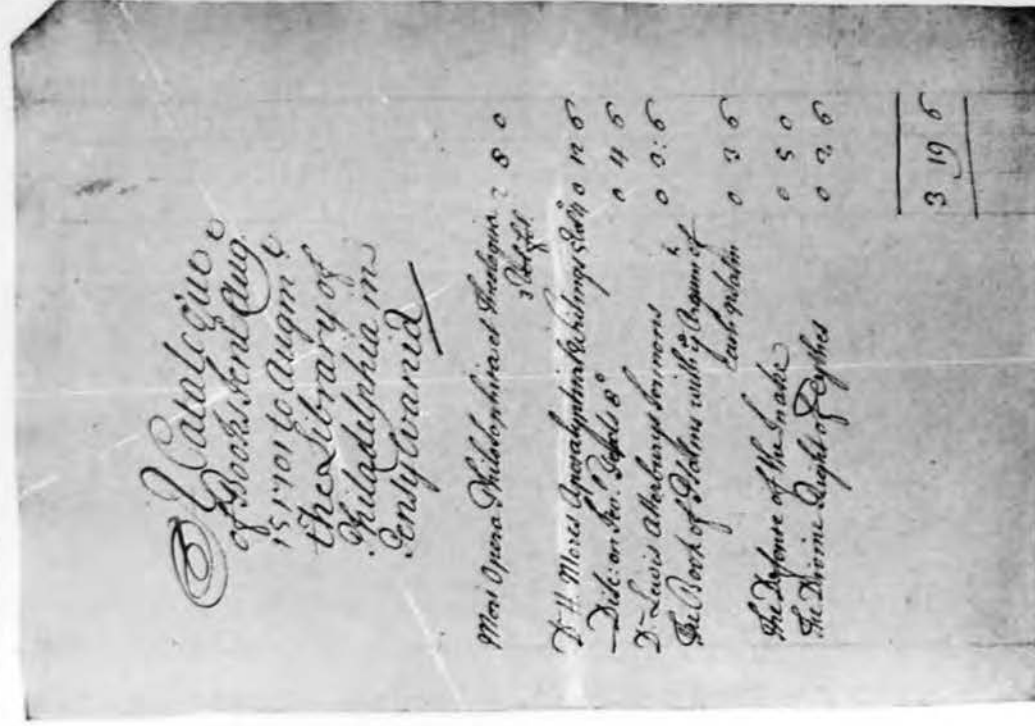 A Catalogue
of Books sent Aug
15 1701 to Augmt ye
the Library of
Philadelphia in
Pensylvania
Mori Opera Philosophica et Theologica 2 8 0
3 Vol fol.
Dr H. Mores Apocalyps 0 12 6
Disc: on Sev.l 8o 0 4 6
Dr Lewis Atterburys Sermons 0 3:6
The Book of Psalms with ye Argumt of
each 0 3 6
The Defence of the Snake 0 5 0
The Divine Right of Tythes 0 2 6
3 19 6